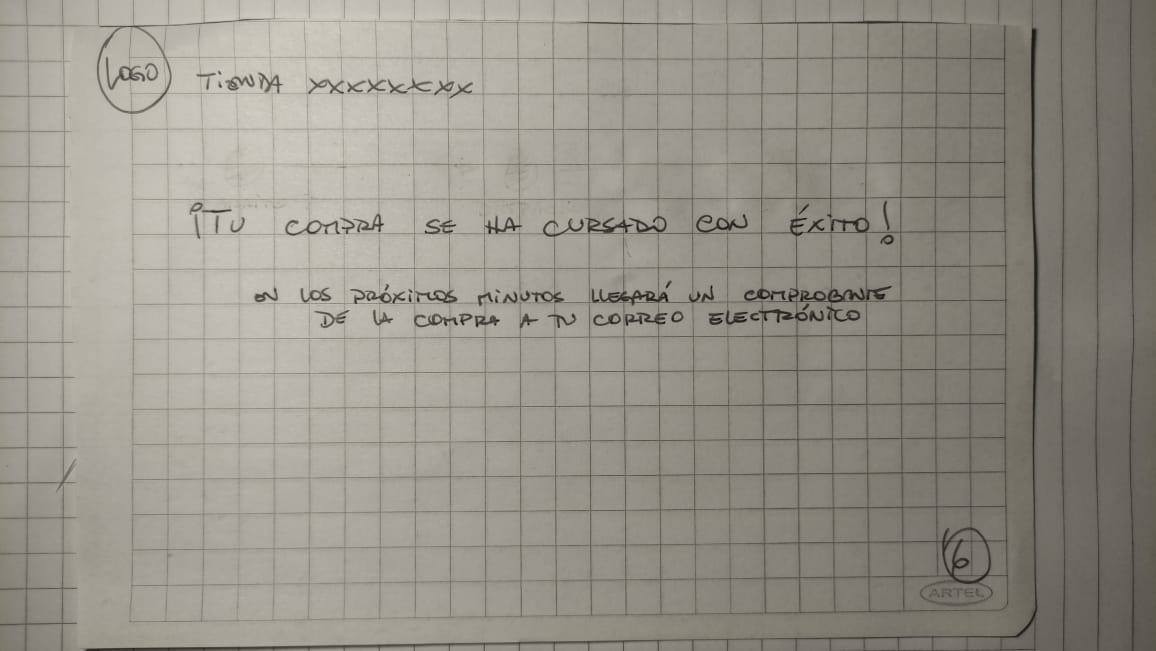 LOGO TiENDA XXXXXXXX
¡TU COMPRA SE HA CURSADO CON ÉXITO!
EN LOS PRÓXIMOS MINUTOS LLEGARÁ UN COMPROBANTE
DE LA COMPRA A TU CORREO ELECTRÓNICO
6
ARTEL